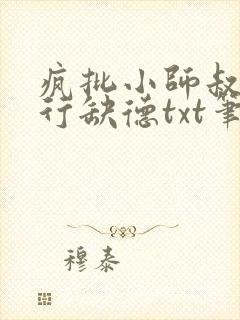 疯批小师叔
行缺德txt笔
穆泰